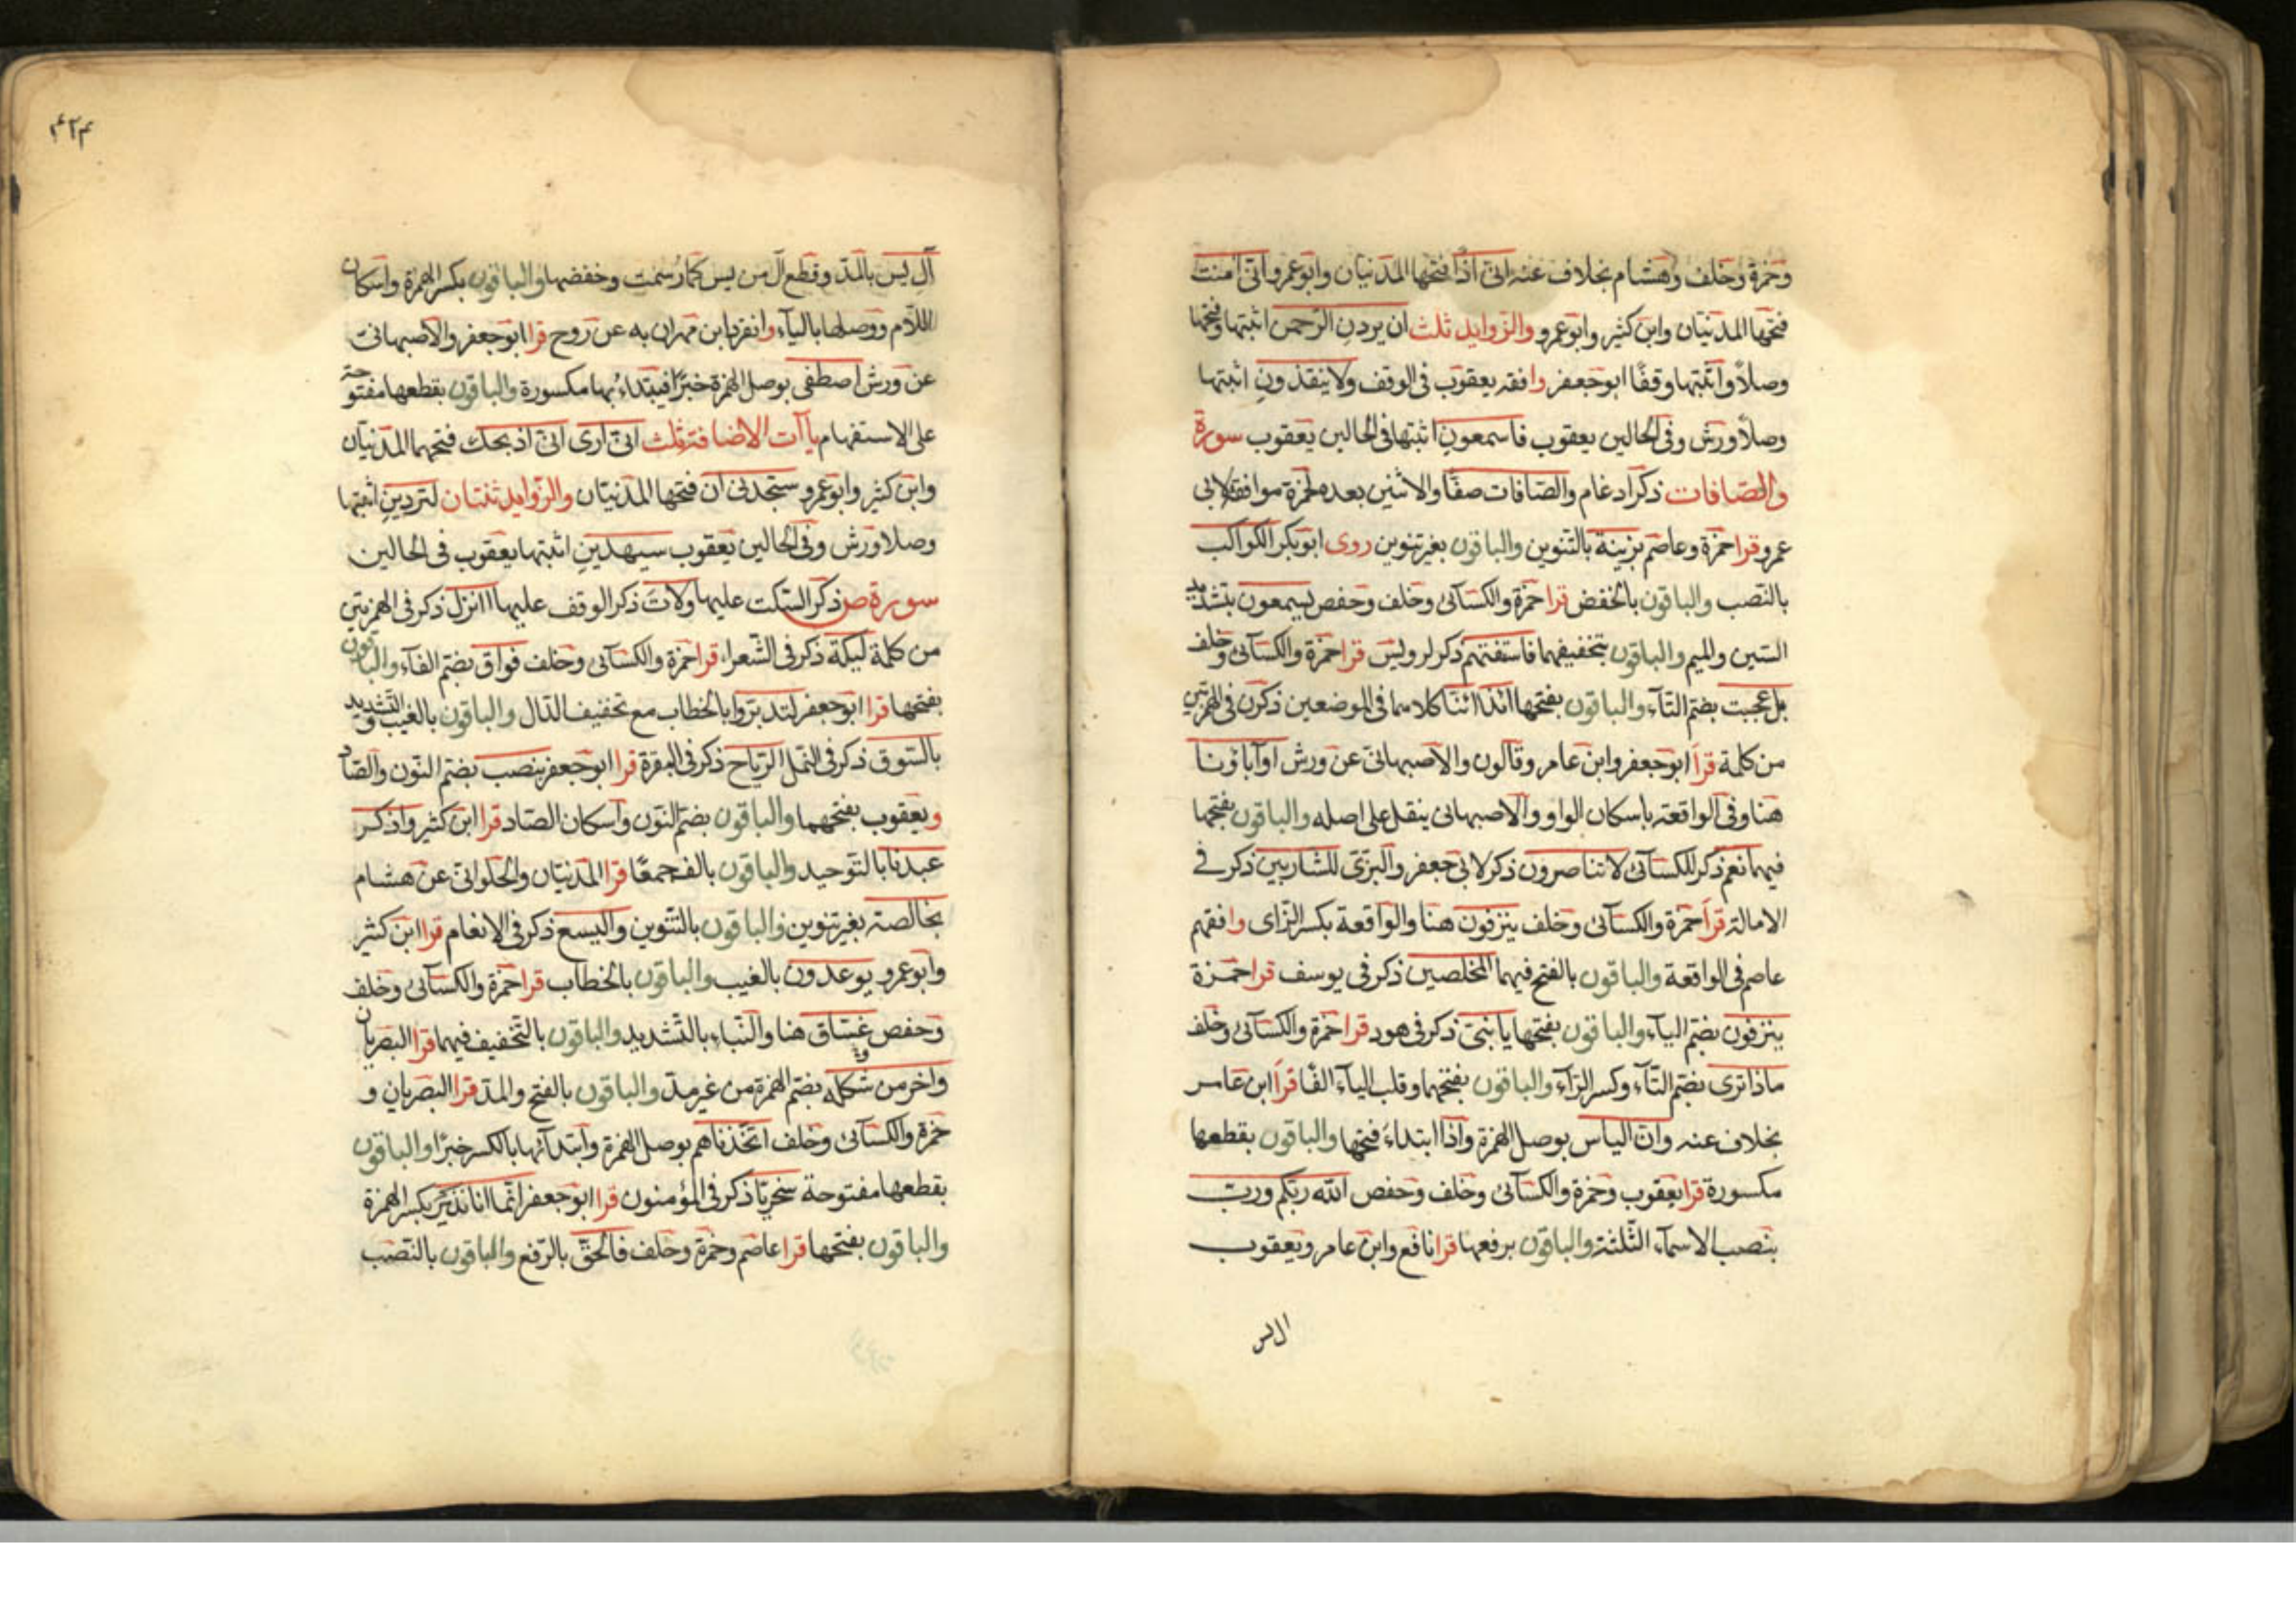 وحمزة وخلف وهشام بخلاف عنه انى اذا فتحها المدنيان وابو عمرو انى امنت
فتحها المدنيان وابن كثير وابو عمرو والزوايد ثلث ان يردن الرحمن اثبتها وفتحها
وصلاً واثبتها وقفًا ابو جعفر وافقه يعقوب فى الوقف ولا ينقذون اثبتها
وصلاً ورش وفى الحالين يعقوب فاسمعون اثبتها فى الحالين يعقوب سورة
والصافات ذكر ادغام والصافات صفًا والاثنين بعده لحمزة موافقة لابى
عمرو قرا حمزة وعاصم بزينة بالتنوين والباقون بغير تنوين روى ابو بكر الكواكب
بالنصب والباقون بالخفض قرا حمزة والكسآئى وخلف وحفص يسمعون بتشديد
السين والميم والباقون بتخفيفهما فاستفتهم ذكر لرويس قرا حمزة والكسآئى وخلف
بل عجبت بضم التآء والباقون بفتحها ائذا ائنا كلاهما فى الموضعين ذكرن فى الهمزتين
من كلمة قرأ ابو جعفر وابن عامر وقالون والاصبهانى عن ورش اوآباؤنا
هنا وفى الواقعة باسكان الواو والاصبهانى ينقل على اصله والباقون بفتحها
فيهما نعم ذكر للكسآئى لا تناصرون ذكر لابى جعفر والبزى للشاربين ذكر فے
الامالة قرأ حمزة والكسآئى وخلف ينزفون هنا والواقعة بكسر الزاى وافقهم
عاصم فى الواقعة والباقون بالفتح فيهما المخلصين ذكر فى يوسف قرا حمزة
ينزفون بضم اليآء والباقون بفتحها يا بنى ذكر فى هود قرا حمزة والكسآئى وخلف
ماذا ترى بضم التآء وكسر الرآء والباقون بفتحهما وقلب اليآء الفًا قرأ ابن عامر
بخلاف عنه وان الياس بوصل الهمزة واذا ابتداء فتحها والباقون بقطعها
مكسورة قرا يعقوب وحمزة والكسآئى وخلف وحفص الله ربكم ورب
بنصب الاسمآء الثلثة والباقون برفعها قرا نافع وابن عامر ويعقوب
ال يس
۴۲۴
آل يس بالمد وقطع ال من يس كما رسمت وخفضها والباقون بكسر الهمزة واسكان
اللام ووصلها باليآء وانفرد ابن مهران به عن روح قرا ابو جعفر والاصبهانى
عن ورش اصطفى بوصل الهمزة خبرًا فيبتداء بها مكسورة والباقون بقطعها مفتوحة
على الاستفهام يآآت الاضافة ثلث انى ارى انى اذبحك فتحهما المدنيان
وابن كثير وابو عمرو ستجدنى ان فتحها المدنيان والزوايد ثنتان لتردين اثبتها
وصلا ورش وفى الحالين يعقوب سيهدين اثبتها يعقوب فى الحالين
سورة ص ذكر السكت عليها ولات ذكر الوقف عليها اانزل ذكر فى الهمزتين
من كلمة ليكة ذكر فى الشعراء قرا حمزة والكسآئى وخلف فواق بضم الفآء والباقون
بفتحها قرا ابو جعفر لتدبروا بالخطاب مع تخفيف الدال والباقون بالغيب والتشديد
بالسوق ذكر فى النمل الرياح ذكر فى البقرة قرا ابو جعفر بنصب بضم النون والصاد
ويعقوب بفتحهما والباقون بضم النون واسكان الصاد قرا ابن كثير واذكر
عبدنا بالتوحيد والباقون بالف جمعًا قرا المدنيان والحلوانى عن هشام
بخالصة بغير تنوين والباقون بالتنوين واليسع ذكر فى الانعام قرا ابن كثير
وابو عمرو يوعدون بالغيب والباقون بالخطاب قرا حمزة والكسآئى وخلف
وحفص غساق هنا والنباء بالتشديد والباقون بالتخفيف فيهما قرا البصريان
واخر من شكله بضم الهمزة من غير مد والباقون بالفتح والمد قرا البصريان و
حمزة والكسآئى وخلف اتخذناهم بوصل الهمزة وابتدآئها بالكسر خبرًا والباقون
بقطعها مفتوحة سخريًا ذكر فى المؤمنون قرا ابو جعفر انما انا نذير بكسر الهمزة
والباقون بفتحها قرا عاصم وحمزة وخلف فالحق بالرفع والباقون بالنصب